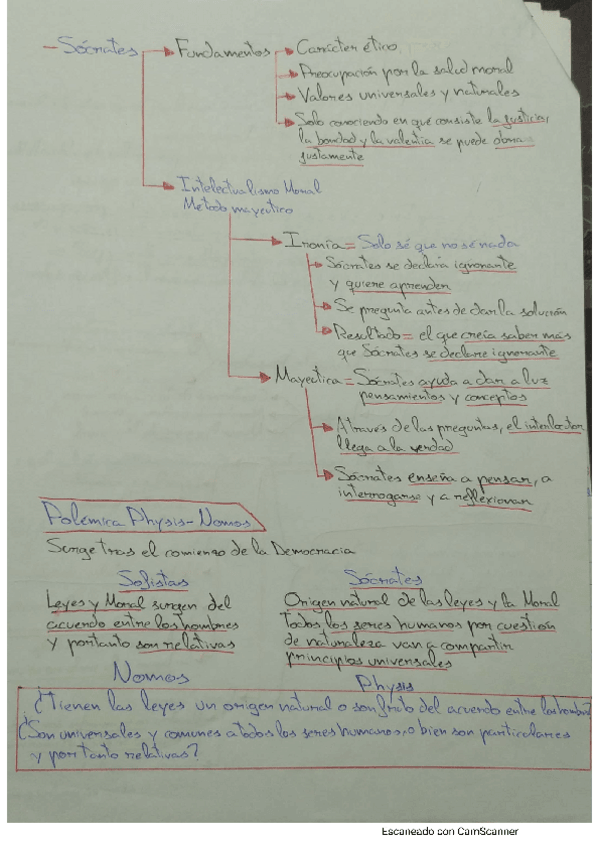 - Sócrates
Fundamentos
Carácter ético
Preocupación por la salud moral
Valores universales y naturales
Solo conociendo en qué consiste la justicia,
la bondad y la valentía se puede obrar
justamente
Intelectualismo Moral
Método mayeútico
Ironía = Solo sé que no sé nada
Sócrates se declara ignorante
y quiere aprender
Se pregunta antes de dar la solución
Resultado = el que creía saber más
que Sócrates se declare ignorante
Mayeútica = Sócrates ayuda a dar a luz
pensamientos y conceptos
A través de las preguntas, el interlocutor
llega a la verdad
Sócrates enseña a pensar, a
interrogarse y a reflexionar
Polémica Physis-Nomos
Surge tras el comienzo de la Democracia
Sofistas
Leyes y Moral surgen del
acuerdo entre los hombres
y por tanto son relativas
Nomos
Sócrates
Origen natural de las leyes y la Moral
Todos los seres humanos por cuestión
de naturaleza van a compartir
principios universales
Physis
¿Tienen las leyes un origen natural o son fruto del acuerdo entre los hombres?
¿Son universales y comunes a todos los seres humanos, o bien son particulares
y por tanto relativas?
Escaneado con CamScanner